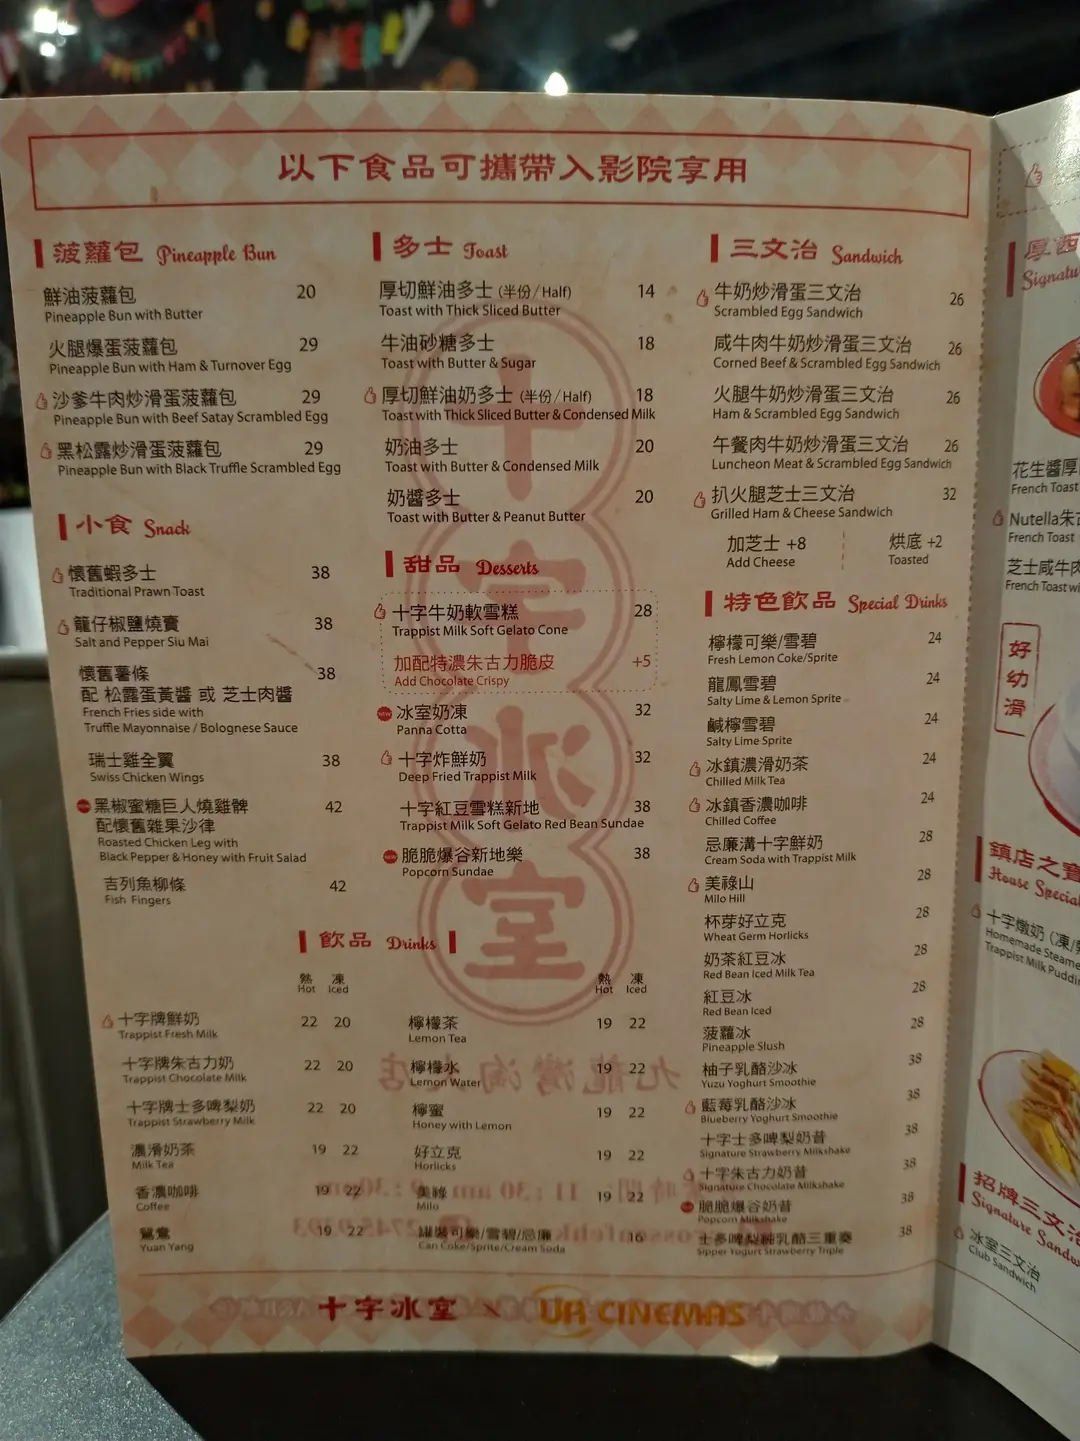 以下食品可攜帶入影院享用
菠蘿包 Pineapple Bun
鮮油菠蘿包 20
Pineapple Bun with Butter
火腿爆蛋菠蘿包 29
Pineapple Bun with Ham & Turnover Egg
沙爹牛肉炒滑蛋菠蘿包 29
Pineapple Bun with Beef Satay Scrambled Egg
黑松露炒滑蛋菠蘿包 29
Pineapple Bun with Black Truffle Scrambled Egg
小食 Snack
懷舊蝦多士 38
Traditional Prawn Toast
籠仔椒鹽燒賣 38
Salt and Pepper Siu Mai
懷舊薯條 38
配 松露蛋黃醬 或 芝士肉醬
French Fries side with
Truffle Mayonnaise / Bolognese Sauce
瑞士雞全翼 38
Swiss Chicken Wings
NEW 黑椒蜜糖巨人燒雞髀 42
配懷舊雜果沙律
Roasted Chicken Leg with
Black Pepper & Honey with Fruit Salad
吉列魚柳條 42
Fish Fingers
多士 Toast
厚切鮮油多士 (半份/Half) 14
Toast with Thick Sliced Butter
牛油砂糖多士 18
Toast with Butter & Sugar
厚切鮮油奶多士 (半份/Half) 18
Toast with Thick Sliced Butter & Condensed Milk
奶油多士 20
Toast with Butter & Condensed Milk
奶醬多士 20
Toast with Butter & Peanut Butter
甜品 Desserts
十字牛奶軟雪糕 28
Trappist Milk Soft Gelato Cone
加配特濃朱古力脆皮 +5
Add Chocolate Crispy
NEW 冰室奶凍 32
Panna Cotta
十字炸鮮奶 32
Deep Fried Trappist Milk
十字紅豆雪糕新地 38
Trappist Milk Soft Gelato Red Bean Sundae
NEW 脆脆爆谷新地樂 38
Popcorn Sundae
三文治 Sandwich
牛奶炒滑蛋三文治 26
Scrambled Egg Sandwich
咸牛肉牛奶炒滑蛋三文治 26
Corned Beef & Scrambled Egg Sandwich
火腿牛奶炒滑蛋三文治 26
Ham & Scrambled Egg Sandwich
午餐肉牛奶炒滑蛋三文治 26
Luncheon Meat & Scrambled Egg Sandwich
扒火腿芝士三文治 32
Grilled Ham & Cheese Sandwich
加芝士 +8 烘底 +2
Add Cheese Toasted
特色飲品 Special Drinks
檸檬可樂/雪碧 24
Fresh Lemon Coke/Sprite
龍鳳雪碧 24
Salty Lime & Lemon Sprite
鹹檸雪碧 24
Salty Lime Sprite
冰鎮濃滑奶茶 24
Chilled Milk Tea
冰鎮香濃咖啡 24
Chilled Coffee
忌廉溝十字鮮奶 28
Cream Soda with Trappist Milk
美祿山 28
Milo Hill
杯芽好立克 28
Wheat Germ Horlicks
奶茶紅豆冰 28
Red Bean Iced Milk Tea
紅豆冰 28
Red Bean Iced
菠蘿冰 28
Pineapple Slush
柚子乳酪沙冰 38
Yuzu Yoghurt Smoothie
藍莓乳酪沙冰 38
Blueberry Yoghurt Smoothie
十字士多啤梨奶昔 38
Signature Strawberry Milkshake
十字朱古力奶昔 38
Signature Chocolate Milkshake
脆脆爆谷奶昔 38
Popcorn Milkshake
士多啤梨乳酪三重奏 38
Sipper Yogurt Strawberry Triple
飲品 Drinks
熱 凍
Hot Iced
十字牌鮮奶 22 20
Trappist Fresh Milk
十字牌朱古力奶 22 20
Trappist Chocolate Milk
十字牌士多啤梨奶 22 20
Trappist Strawberry Milk
濃滑奶茶 19 22
Milk Tea
香濃咖啡 19 22
Coffee
鴛鴦 19 22
Yuan Yang
熱 凍
Hot Iced
檸檬茶 19 22
Lemon Tea
檸檬水 19 22
Lemon Water
檸蜜 19 22
Honey with Lemon
好立克 19 22
Horlicks
美祿 19 22
Milo
罐裝可樂/雪碧/忌廉 16
Can Coke/Sprite/Cream Soda
十字冰室 × UA CINEMAS
厚西
Signatu
花生醬厚
French Toast
Nutella朱古
French Toast
芝士咸牛肉
French Toast wi
好幼滑
鎮店之寶
House Special
十字燉奶 (凍/
Homemade Steame
Trappist Milk Puddin
招牌三文治
Signature Sandw
冰室三文治
Club Sandwich